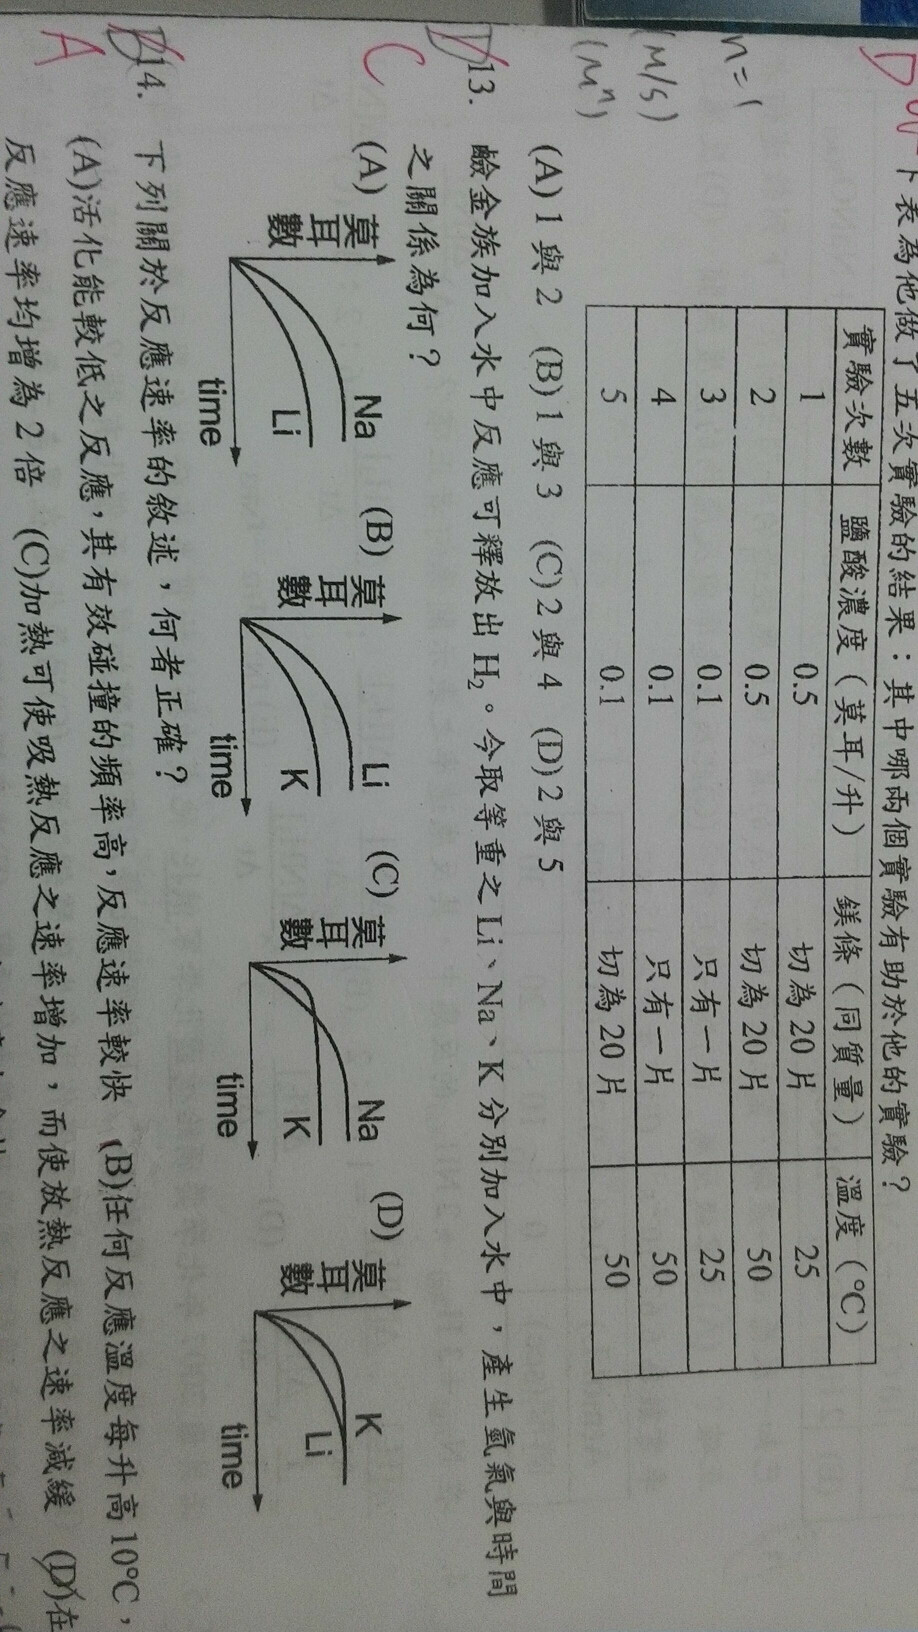 下表為他做了五次實驗的結果:其中哪兩個實驗有助於他的實驗?
實驗次數 鹽酸濃度(莫耳/升) 鎂條(同質量) 溫度(℃)
1 0.5 切為20片 25
2 0.5 切為20片 50
3 0.1 只有一片 25
4 0.1 只有一片 50
5 0.1 切為20片 50
n=1
(M/s)
(Mⁿ)
(A)1與2 (B)1與3 (C)2與4 (D)2與5
D 13. 鹼金族加入水中反應可釋放出H₂。今取等重之Li、Na、K分別加入水中,產生氫氣與時間
C
之關係為何?
(A) 莫耳數 Na Li time
(B) 莫耳數 Li K time
(C) 莫耳數 Na K time
(D) 莫耳數 K Li time
14. 下列關於反應速率的敘述,何者正確?
A
(A)活化能較低之反應,其有效碰撞的頻率高,反應速率較快 (B)任何反應溫度每升高10℃,
反應速率均增為2倍 (C)加熱可使吸熱反應之速率增加,而使放熱反應之速率減緩 (D)在